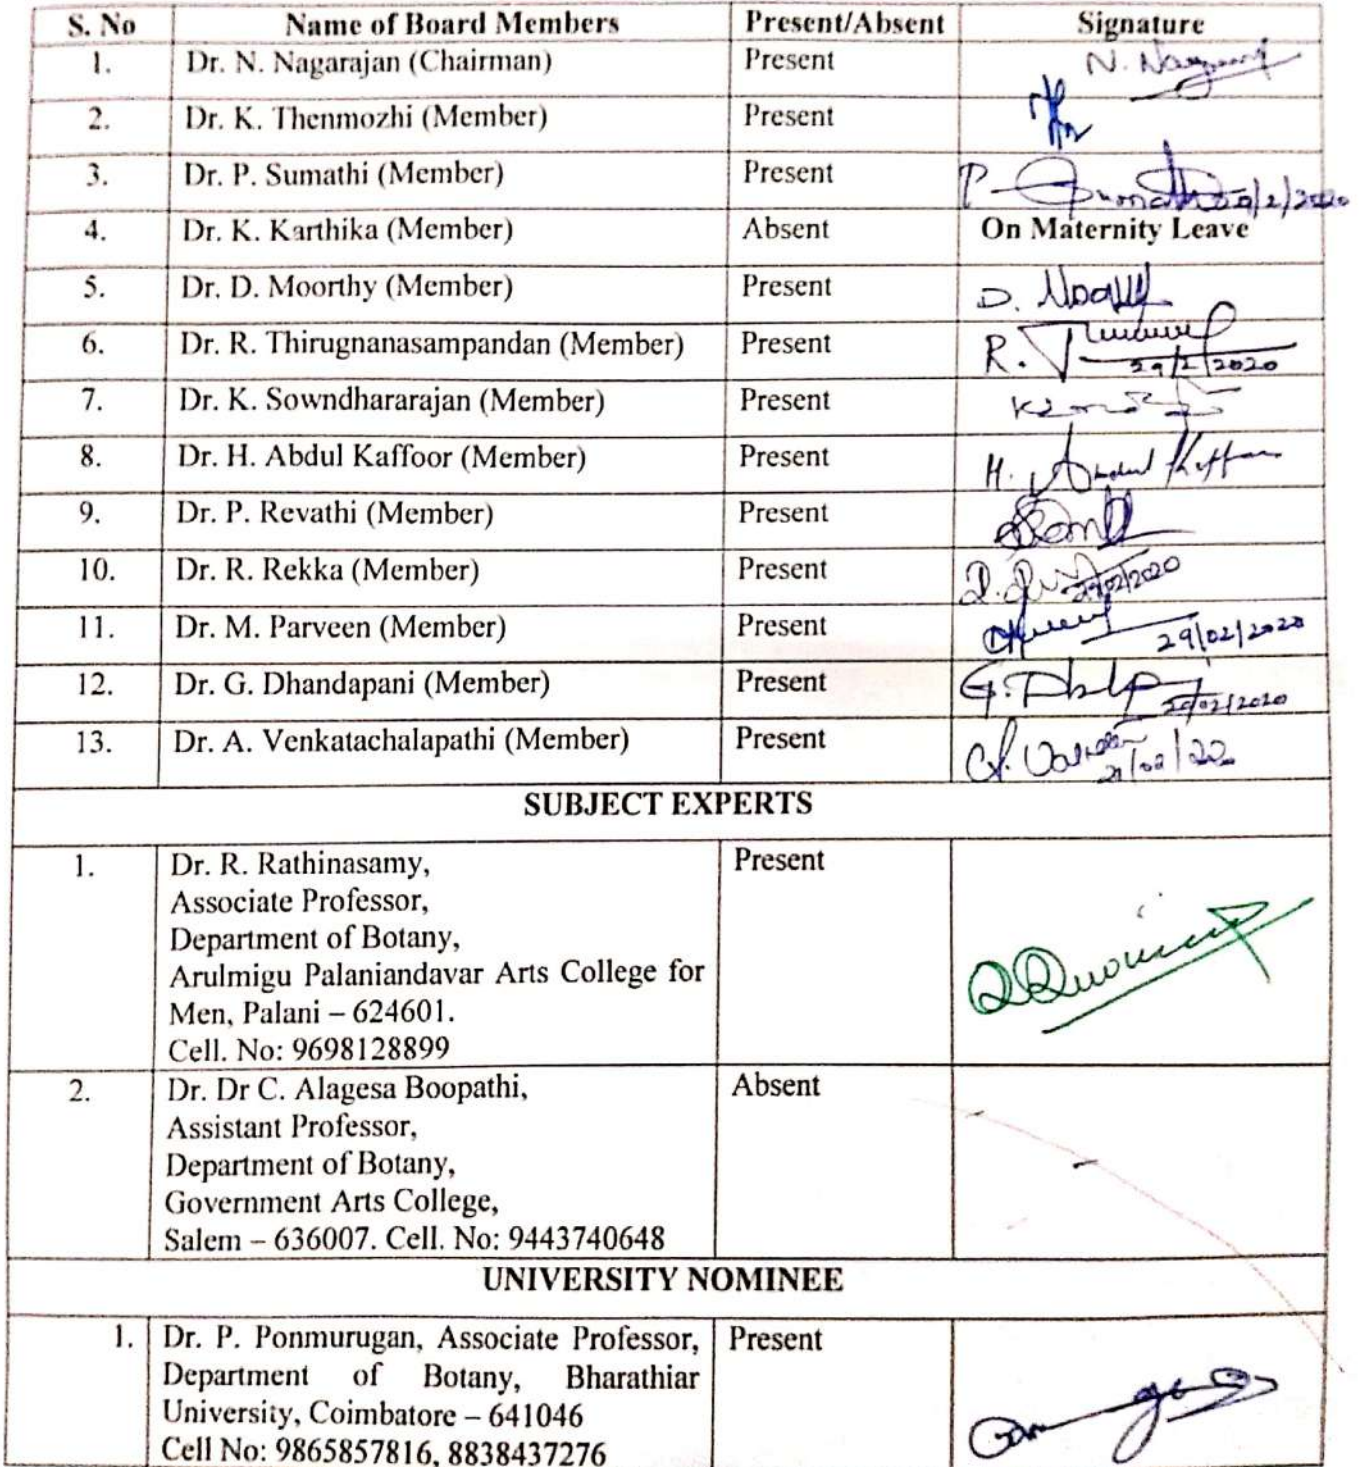 S. No Name of Board Members Present/Absent Signature
1. Dr. N. Nagarajan (Chairman) Present N.
2. Dr. K. Thenmozhi (Member) Present
3. Dr. P. Sumathi (Member) Present P. Sumathi 29/2/2020
4. Dr. K. Karthika (Member) Absent On Maternity Leave
5. Dr. D. Moorthy (Member) Present D.
6. Dr. R. Thirugnanasampandan (Member) Present R. 29/2/2020
7. Dr. K. Sowndhararajan (Member) Present
8. Dr. H. Abdul Kaffoor (Member) Present H. Abdul Kaffoor
9. Dr. P. Revathi (Member) Present
10. Dr. R. Rekka (Member) Present 29/02/2020
11. Dr. M. Parveen (Member) Present 29/02/2020
12. Dr. G. Dhandapani (Member) Present G. 29/02/2020
13. Dr. A. Venkatachalapathi (Member) Present
SUBJECT EXPERTS
1. Dr. R. Rathinasamy, Present
Associate Professor,
Department of Botany,
Arulmigu Palaniandavar Arts College for
Men, Palani – 624601.
Cell. No: 9698128899
2. Dr. Dr C. Alagesa Boopathi, Absent
Assistant Professor,
Department of Botany,
Government Arts College,
Salem – 636007. Cell. No: 9443740648
UNIVERSITY NOMINEE
1. Dr. P. Ponmurugan, Associate Professor, Present
Department of Botany, Bharathiar
University, Coimbatore – 641046
Cell No: 9865857816, 8838437276